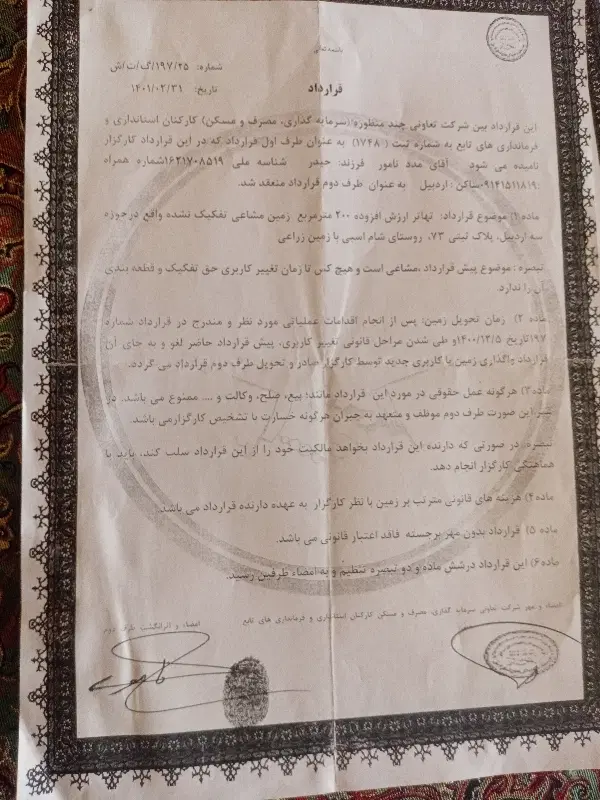 باسمه تعالی
شماره: ۱۹۷/۲۵/گ/ت/ش
تاریخ: ۱۴۰۱/۰۲/۳۱
قرارداد
این قرارداد بین شرکت تعاونی چند منظوره (سرمایه گذاری، مصرف و مسکن) کارکنان استانداری و
فرمانداری های تابع به شماره ثبت (۱۷۴۸) به عنوان طرف اول قرارداد که در این قرارداد کارگزار
نامیده می شود آقای مدد نامور فرزند: حیدر شناسه ملی ۱۶۲۱۷۰۸۵۱۹شماره همراه
:۰۹۱۴۱۵۱۱۸۱۹ساکن: اردبیل به عنوان طرف دوم قرارداد منعقد شد.
ماده ۱) موضوع قرارداد: تهاتر ارزش افزوده ۲۰۰ مترمربع زمین مشاعی تفکیک نشده واقع درحوزه
سه اردبیل، پلاک ثبتی ۷۳، روستای شام اسبی با زمین زراعی
تبصره: موضوع پیش قرارداد ،مشاعی است و هیچ کس تا زمان تغییر کاربری حق تفکیک و قطعه بندی
آن را ندارد.
ماده ۲) زمان تحویل زمین: پس از انجام اقدامات عملیاتی مورد نظر و مندرج در قرارداد شماره
۱۹۷تاریخ ۱۴۰۰/۱۲/۵و طی شدن مراحل قانونی تغییر کاربری، پیش قرارداد حاضر لغو و به جای آن
قرارداد واگذاری زمین با کاربری جدید توسط کارگزار صادر و تحویل طرف دوم قرارداد می گردد.
ماده۳) هرگونه عمل حقوقی در مورد این قرارداد مانند؛ بیع، صلح، وکالت و ... ممنوع می باشد. در
غیر این صورت طرف دوم موظف و متعهد به جبران هرگونه خسارت با تشخیص کارگزارمی باشد.
تبصره: در صورتی که دارنده این قرارداد بخواهد مالکیت خود را از این قرارداد سلب کند، باید با
هماهنگی کارگزار انجام دهد.
ماده۴) هزینه های قانونی مترتب بر زمین با نظر کارگزار به عهده دارنده قرارداد می باشد.
ماده ۵) قرارداد بدون مهر برجسته فاقد اعتبار قانونی می باشد.
ماده۶) این قرارداد درشش ماده و دو تبصره تنظیم و به امضاء طرفین رسید.
امضاء و مهر شرکت تعاونی سرمایه گذاری، مصرف و مسکن کارکنان استانداری و فرمانداری های تابع
امضاء و اثرانگشت طرف دوم